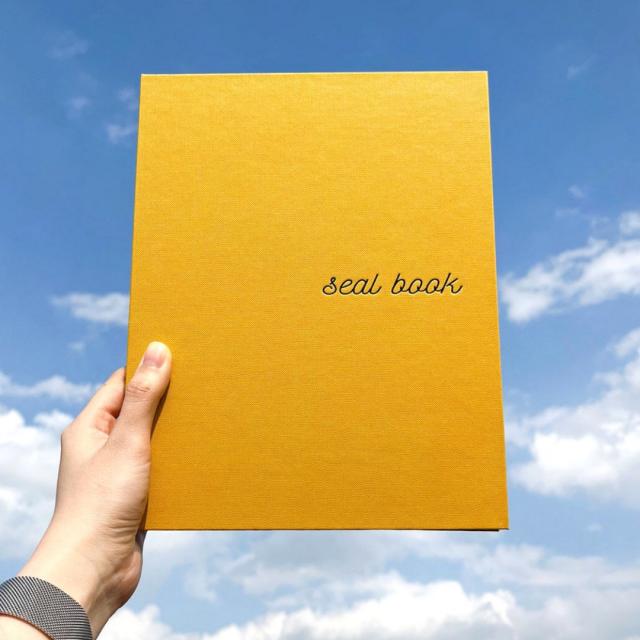 seal book